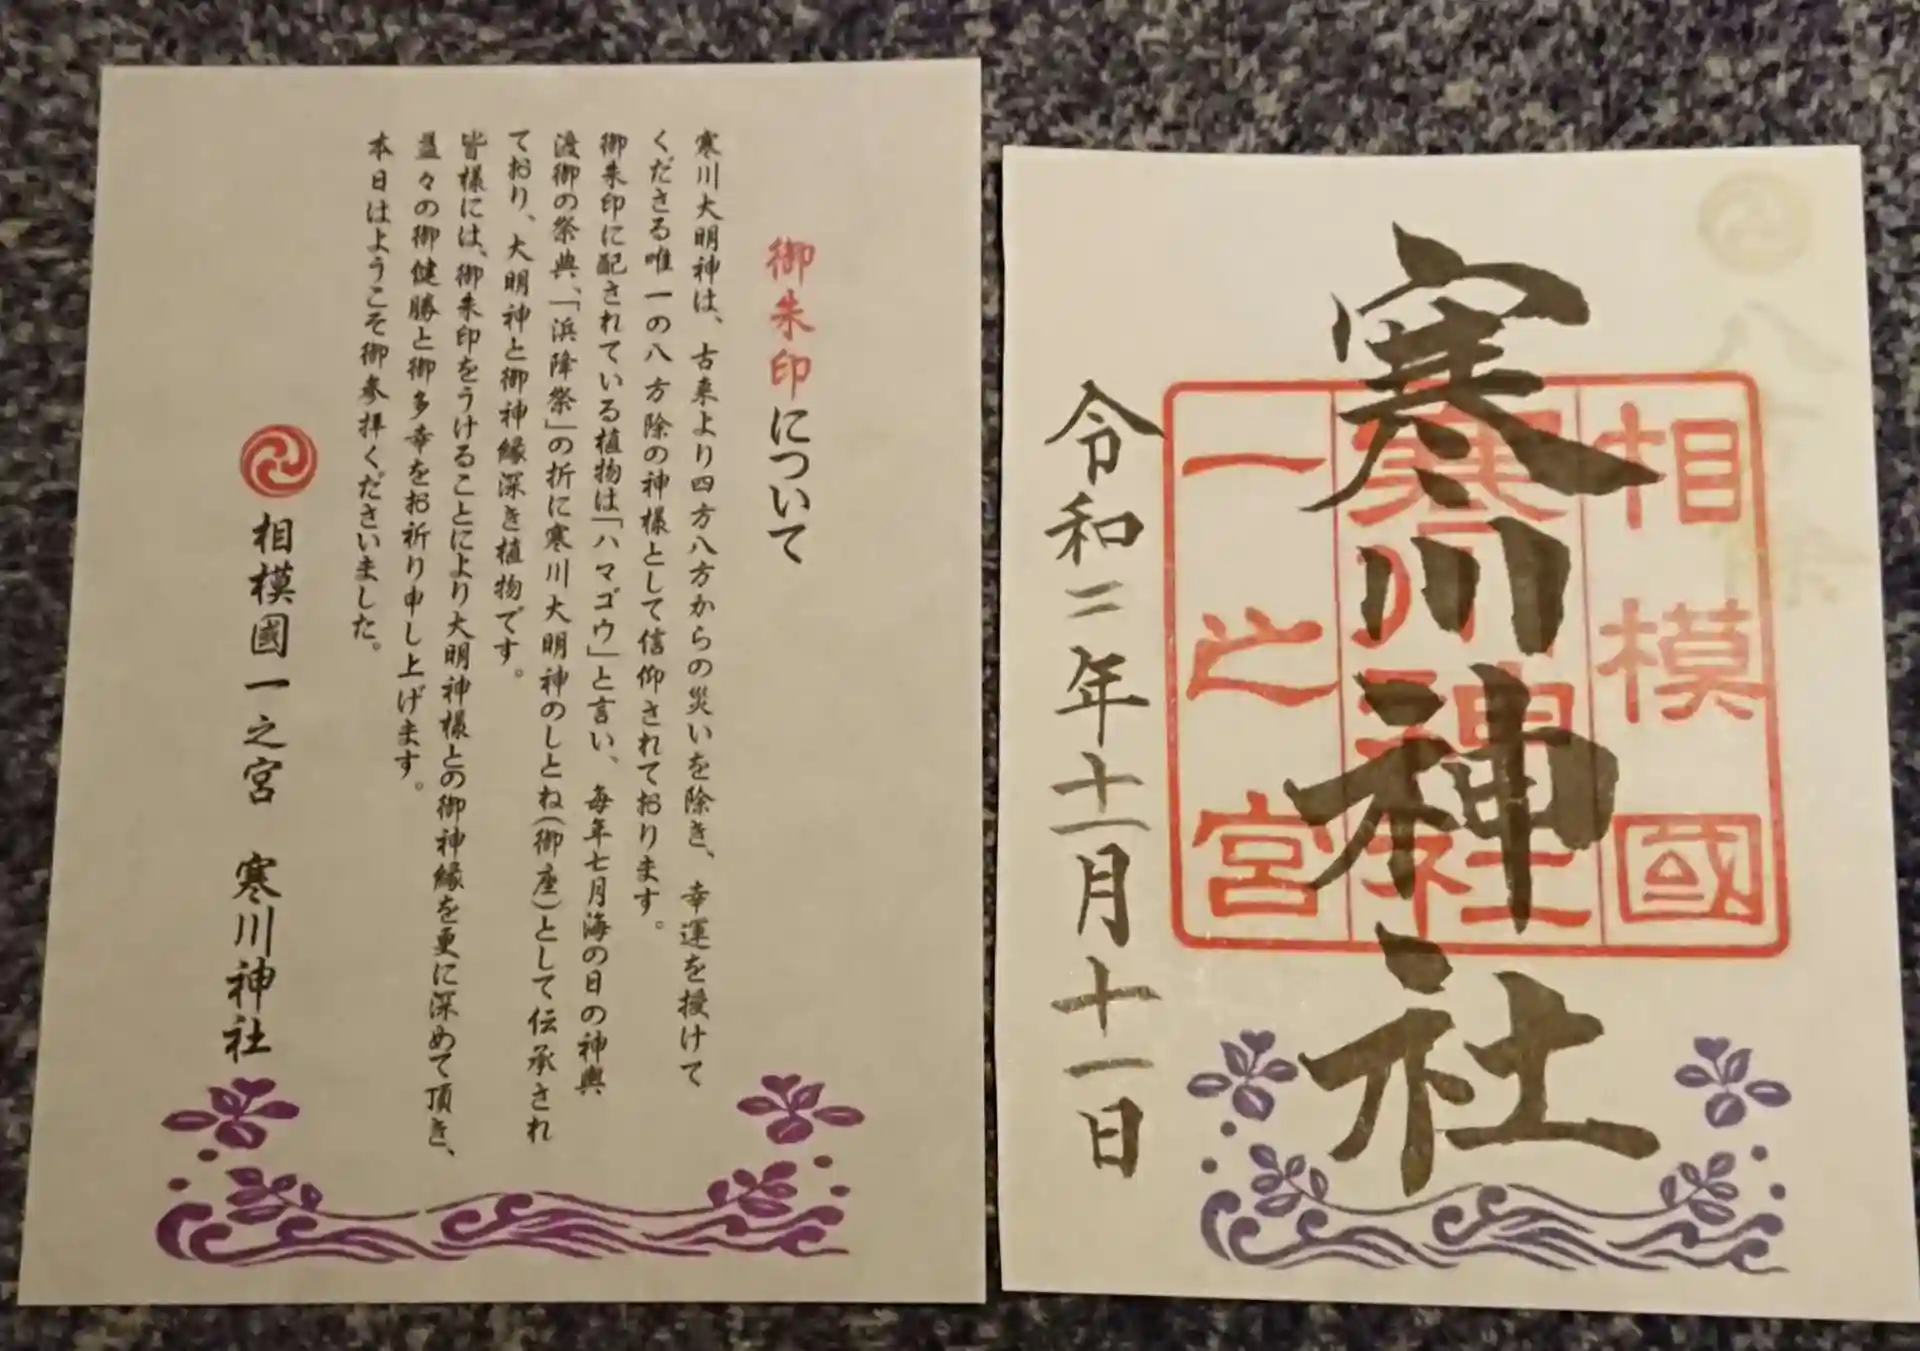 御朱印について
寒川大明神は、古来より四方八方からの災いを除き、幸運を授けて
くださる唯一の八方除の神様として信仰されております。
御朱印に配されている植物は「ハマゴウ」と言い、毎年七月海の日の神輿
渡御の祭典、「浜降祭」の折に寒川大明神のしとね(御座)として伝承され
ており、大明神と御神縁深き植物です。
皆様には、御朱印をうけることにより大明神様との御神縁を更に深めて頂き、
益々の御健勝と御多幸をお祈り申し上げます。
本日はようこそ御参拝くださいました。
相模國一之宮 寒川神社
八方除
相模國
寒川神社
一之宮
寒川神社
令和二年十一月十一日